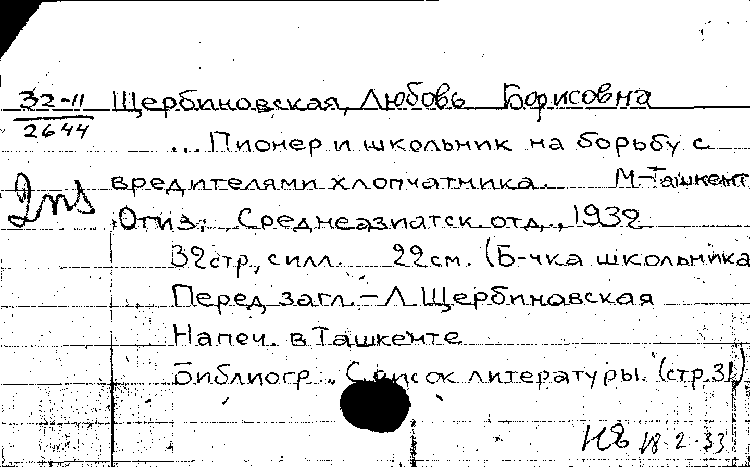 32-11 Щербиновская, Любовь Борисовна
2644
... Пионер и школьник на борьбу с
вредителями хлопчатника. М-Ташкент
Огиз, Среднеазиатск. отд., 1932
32 стр., с илл. 22 см. (Б-чка школьника
Перед загл. - Л. Щербиновская
Напеч. в Ташкенте
Библиогр.: Список литературы. (стр. 31)
18.2.33